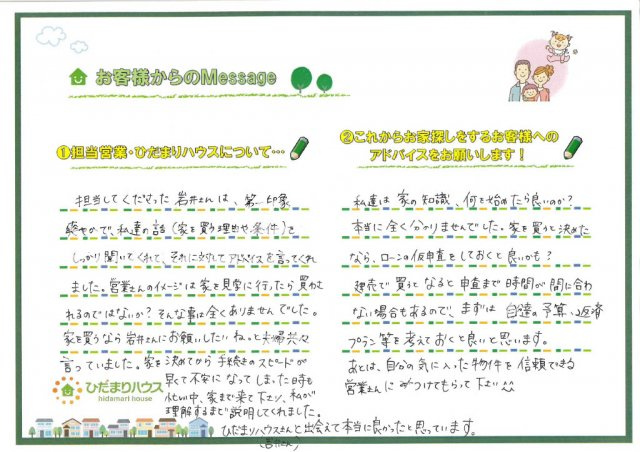 お客様からのMessage
①担当営業・ひだまりハウスについて…
担当してくださった岩井さんは、第一印象
爽やかで、私達の話（家を買う理由や条件）を
しっかり聞いてくれて、それに対してアドバイスを言ってくれ
ました。営業さんのイメージは家を見学に行ったら買わさ
れるのではないか？そんな事は全くありませんでした。
家を買うなら岩井さんにお願いしたいねっと夫婦共々
言っていました。家を決めてから手続きのスピードが
早くて不安になってしまった時も
忙しい中、家まで来て下さり、私が
理解するまで説明してくれました。
ひだまりハウスさんと出会えて本当に良かったと思っています。
(岩井さん)
②これからお家探しをするお客様への
アドバイスをお願いします！
私達は家の知識、何を始めたら良いのか？
本当に全く分かりませんでした。家を買うと決めた
なら、ローンの仮申査をしておくと良いかも？
建売で買うとなると申査まで時間が間に合わ
ない場合もあるので、まずは自達の予算、返済
プラン等を考えておくと良いと思います。
あとは、自分の気に入った物件を信頼できる
営業さんにみつけてもらって下さい^^
ひだまりハウス
hidamari house